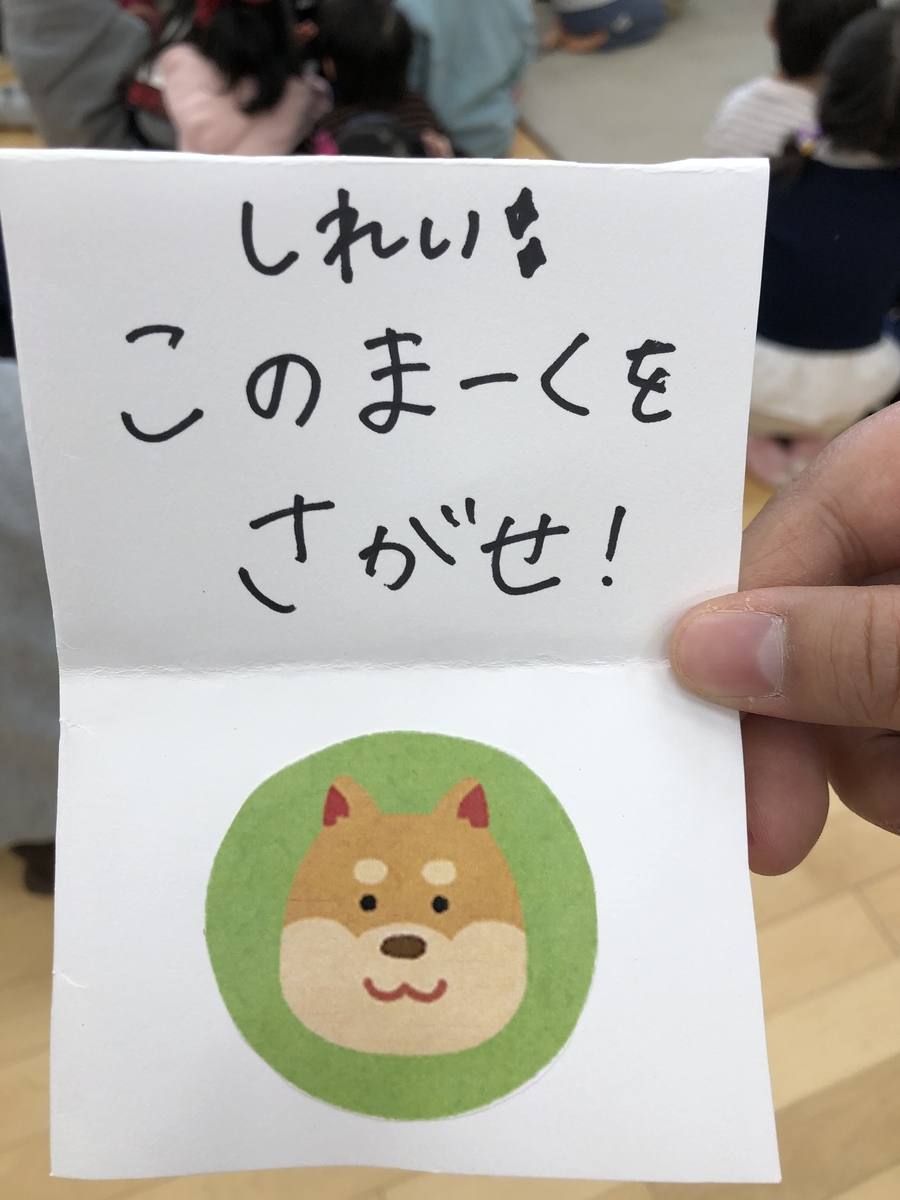 しれい:
このまーくを
さがせ!